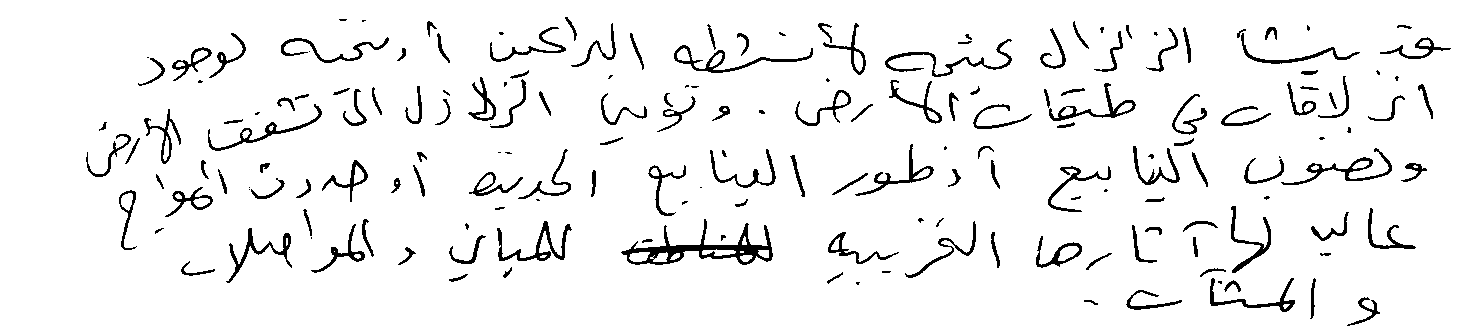 قد ينشأ الزلزال كنتيجه لأنشطه البراكين أو نتيجه لوجود
انزلاقات في طبقات الأرض . وتؤدي الزلازل الى تشقق الأرض
ونضوب الينابيع أو ظهور الينابيع الجديدة أو حدوث أمواج
عاليه لها آثارها التخريبيه للمباني والمواصلات
والمنشآت .